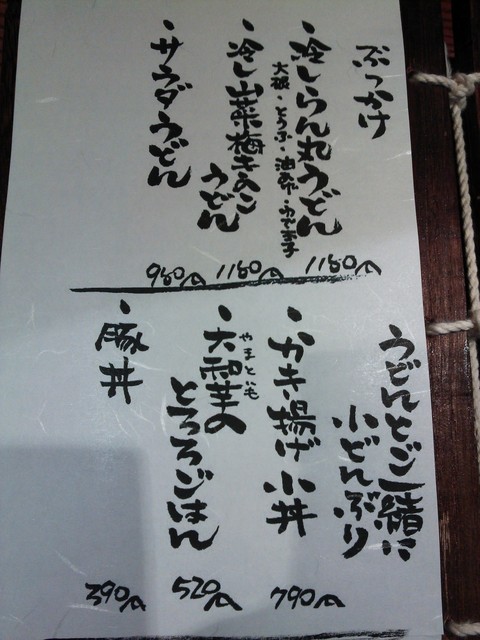 ぶっかけ
・冷しらん丸うどん
大根・とうふ・油あげ・ゆで玉子
1180円
・冷し山菜梅きのこ
うどん
1180円
・サラダうどん
980円
うどんとご一緒に
小どんぶり
・かき揚げ小丼
790円
・大和芋の
やまといも
とろろごはん
520円
・豚丼
390円